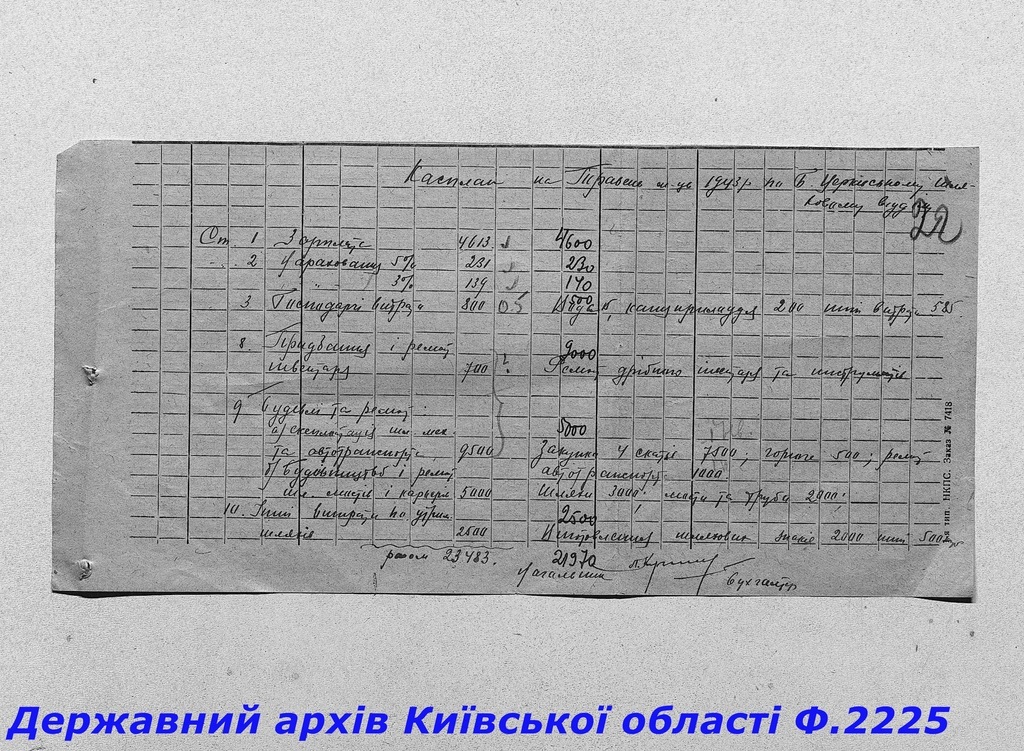 Касплан на Травень м-ць 1943 р по Б Церківському шля-
ховому відділу
22
Ст. 1 Зарплата 4613 4600
2 Нарахования 5% 231 230
3% 139 140
3 Господарчі витрати 800 0.5 500 канцприладдя 200 інші витрати 585
8. Придбання і ремонт 9000
інвентаря 700 ? Ремонт дрібного інвентаря та інструментів
9 Будівлі та ремонт:
а) експлоатація шл. мех. 5000
та автотранспорта 9500 Закупка 4 скати 7500; горюче 500; ремонт
б) Будівництво і ремонт автотранспорт 1000.
шл. мостів і карьєрів 5000 Шляхи 3000; мости та труба 2000;
10. Інші витрати по утрим. 2500
шляхів 2500 Виготовлення шляхових знаків 2000 інші 500
разом 23483. 21970
Начальник Бухгалтер
тип. НКПС. Заказ № 7418
Державний архів Київської області Ф.2225